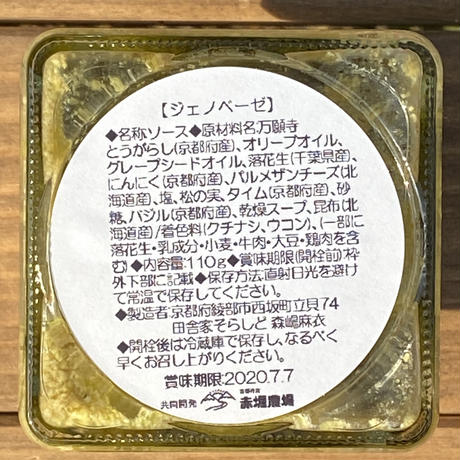 【ジェノベーゼ】
◆名称ソース◆原材料名:万願寺
とうがらし(京都府産)、オリーブオイル、
グレープシードオイル、落花生(千葉県産)、
にんにく(京都府産)、パルメザンチーズ(北
海道産)、塩、松の実、タイム(京都府産)、砂
糖、バジル(京都府産)、乾燥スープ、昆布(北
海道産)/着色料(クチナシ、ウコン)、(一部に
落花生・乳成分・小麦・牛肉・大豆・鶏肉を含
む)◆内容量:110g◆賞味期限(開栓前)枠
外下部に記載◆保存方法:直射日光を避け
て常温で保存してください。
◆製造者:京都府綾部市西坂町立貝74
田舎家そらしと 森嶋麻衣
◆開栓後は冷蔵庫で保存し、なるべく
早くお召し上がりください。
賞味期限:2020.7.7
共同開発 京都府産 赤堀農場